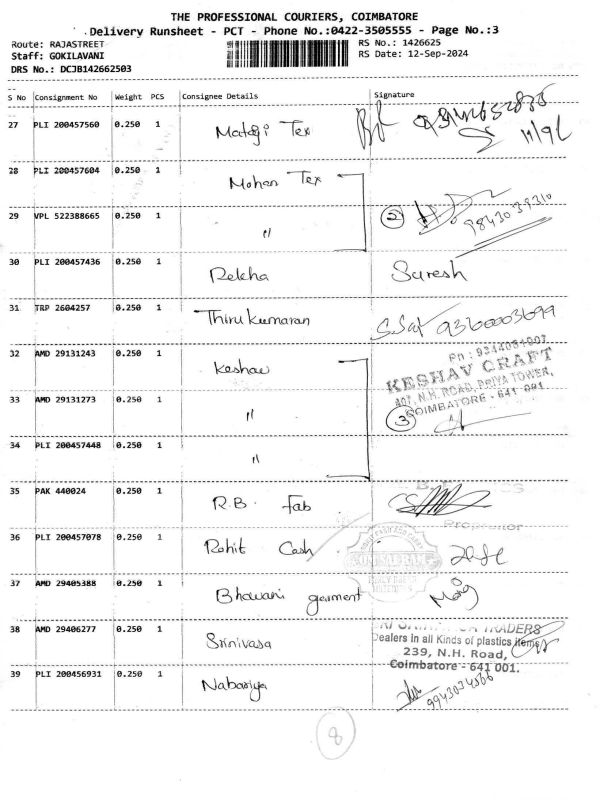 THE PROFESSIONAL COURIERS, COIMBATORE
Delivery Runsheet - PCT - Phone No.:0422-3505555 - Page No.:3
Route: RAJASTREET
RS No.: 1426625
Staff: GOKILAVANI
RS Date: 12-Sep-2024
DRS No.: DCJB142662503
S No Consignment No Weight PCS Consignee Details Signature
27 PLI 200457560 0.250 1 Mataji Tex
28 PLI 200457604 0.250 1 Mohan Tex
29 VPL 522388665 0.250 1 〃 2 9843039310
30 PLI 200457436 0.250 1 Rekha Suresh
31 TRP 2604257 0.250 1 Thirukumaran 9360003699
32 AMD 29131243 0.250 1 Keshav
KESHAV CRAFT
407, N.H. ROAD, PRIYA TOWER,
COIMBATORE - 641 001
33 AMD 29131273 0.250 1 〃 3
34 PLI 200457448 0.250 1 〃
35 PAK 440024 0.250 1 R.B. Fab
Proprietor
36 PLI 200457078 0.250 1 Rohit Cash
37 AMD 29405388 0.250 1 Bhawani garment
38 AMD 29406277 0.250 1 Srinivasa
TRADERS
Dealers in all Kinds of plastics items
239, N.H. Road,
Coimbatore - 641 001.
39 PLI 200456931 0.250 1 Nabariya
8